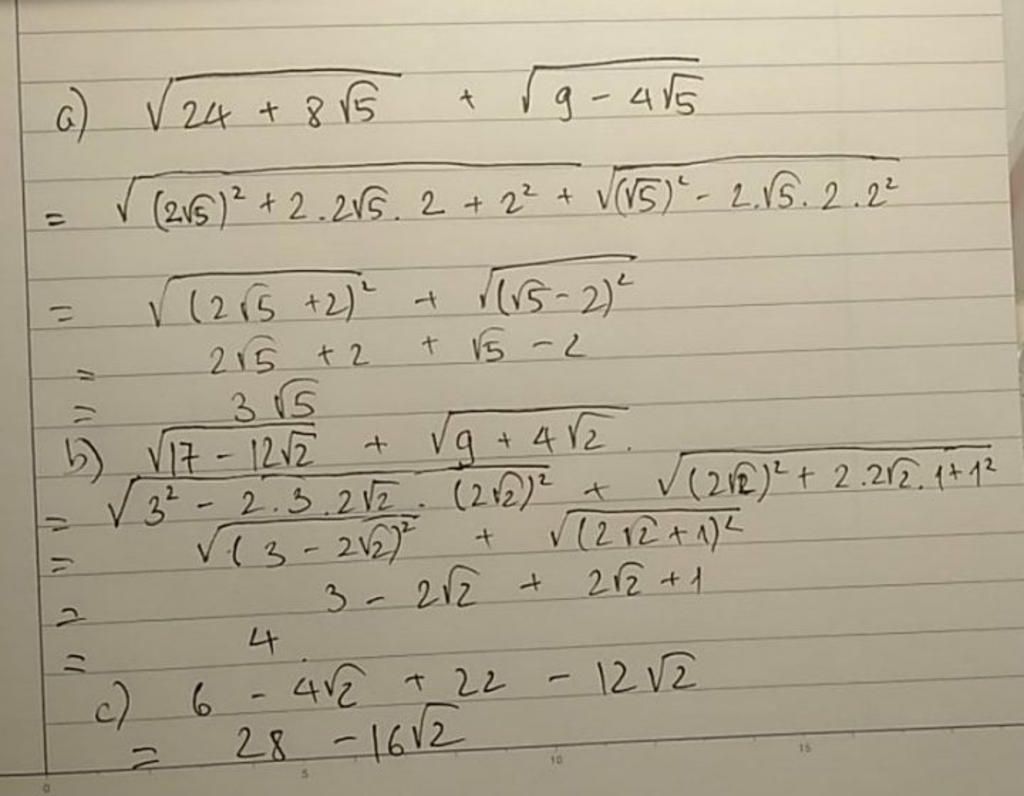 a) √(24 + 8√5) + √(9 - 4√5)
= √((2√5)² + 2.2√5.2 + 2² + √((√5)² - 2.√5.2.2²
= √((2√5 +2)² + √((√5-2)²
= 2√5 +2 + √5 -2
= 3√5
b) √(17 - 12√2) + √(9 + 4√2).
= √(3² - 2.3.2√2.(2√2)²) + √((2√2)² + 2.2√2.1+1²
= √(3 - 2√2)² + √(2√2+1)²
= 3 - 2√2 + 2√2 +1
= 4.
c) 6 - 4√2 + 22 - 12√2
= 28 -16√2
0 5 10 15